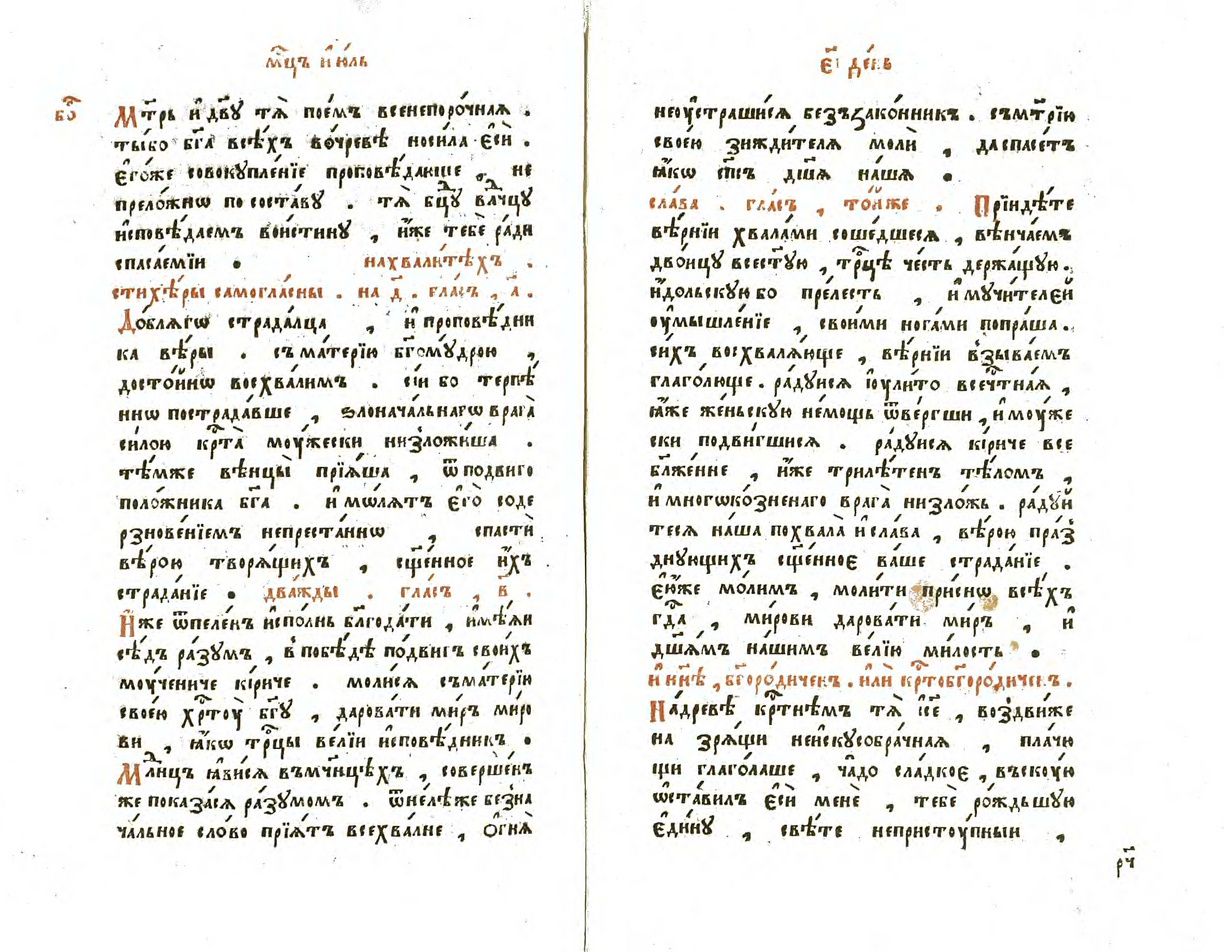 мⷭ҇цъ і҆ю́ль
бо҃
Мт҃рь и҆ дв҃ꙋ тѧ̀ пое́мъ всенепоро́чнаѧ .
ты́ бо бг҃а всѣ́хъ во́чревѣ носи́ла є҆сѝ .
є҆го́же совокꙋпле́нїе проповѣ́дающе , не
прело́жнѡ по соста́вꙋ . тѧ̀ бцⷣꙋ влⷣчцꙋ
и҆сповѣ́даемъ вои́стинꙋ , и҆́же тебѐ ра́ди
спаса́емїи • нахвали́тѣхъ .
стихѣ́ры самогла́сны . на д҃ . гла́съ , а҃ .
До́блѧгѡ страда́лца , и҆ проповѣ́дни
ка вѣ́ры . съ ма́терїю бг҃омꙋ́дрою ,
досто́йнѡ восхва́лимъ . сі́и бо терпѣ́
ннѡ пострада́вше , ѕлонача́льнагѡ врага̀
си́лою крⷭ҇та̀ моу́жески низложи́ша .
тѣ́мже вѣнцы̀ прїѧ́ша , ѿ подвиго
поло́жника бг҃а . и҆ мо́лѧтъ є҆го̀ со де
рзнове́нїемъ непреста́ннѡ , спастѝ
вѣ́рою творѧ́щихъ , сщ҃е́нное и҆́хъ
страда́нїе • два́жды . гла́съ , в҃ .
И҆́же ѿ пеле́нъ и҆спо́лнь блгⷣода́ти , и҆мѣ́ѧи
сѣ́дъ ра́зꙋмъ , в побѣ́дѣ по́двигъ свои́хъ
моу́чениче кі́риче . моли́сѧ съ ма́терїю
свое́ю хрⷭ҇тоу̀ бг҃ꙋ , дарова́ти ми́ръ миро
ви , ꙗ҆́кѡ трⷪ҇цы ве́лїи и҆сповѣ́дникъ .
Млⷣнцъ ꙗ҆ви́сѧ въ мчн҃цѣхъ , соверше́нъ
же показа́сѧ ра́зꙋмомъ . ѿнелѣ́же безна
ча́льное сло́во прїѧ́тъ всехва́лне , ѻ҆гнѧ̀
є҃і де́нь
неоу҆страши́сѧ безъзако́нникъ . съ мт҃рїю
свое́ю зижди́телѧ молѝ , да спасе́тъ
ꙗ҆́кѡ сп҃съ дш҃ѧ на́шѧ •
сла́ва . гла́съ , то́йже . Прїиди́те
вѣ́рнїи хвала́ми соше́дшесѧ , вѣнча́емъ
двои́цꙋ всест҃ꙋю , трⷪ҇цѣ че́сть держа́щꙋю .
и҆́дольскꙋю бо пре́лесть , и҆ мꙋчи́телей
оу҆мышле́нїе , свои́ми нога́ми попра́ша .
си́хъ восхвалѧ́юще , вѣ́рнїи взыва́емъ
глаго́люще . ра́дꙋисѧ і҆оули́то всечⷭ҇тнаѧ ,
ꙗ҆́же же́ньскꙋю не́мощь ѿве́ргши , и҆ моу́же
ски подви́гшисѧ . ра́дꙋисѧ кі́риче все
бл҃же́нне , и҆́же трилѣ́тенъ тѣ́ломъ ,
и҆ многѡко́зненаго врага̀ низло́жь . ра́дꙋй
тесѧ на́ша похвала̀ и҆ сла́ва , вѣ́рою пра́з
днꙋющихъ сщ҃е́нное ва́ше страда́нїе .
є҆ю́же мо́лимъ , моли́ти при́снѡ всѣ́хъ
гдⷭ҇а , ми́рови дарова́ти ми́ръ , и҆
дш҃ѧ́мъ на́шимъ ве́лїю ми́лость •
и҆ ны́нѣ , бг҃оро́диченъ . и҆лѝ крⷭ҇тобг҃оро́диченъ .
На дре́вѣ крⷭ҇тнѣмъ тѧ̀ і҆с҃е , воздви́же
на зрѧ́щи неискꙋсобра́чнаѧ , пла́чю
щи глаго́лаше , ча́до сла́дкое , въскоую
ѡ҆ста́вилъ є҆сѝ менѐ , тебѐ ро́ждьшꙋю
є҆ди́нꙋ , свѣ́те непристоу́пныи ,
рч҃